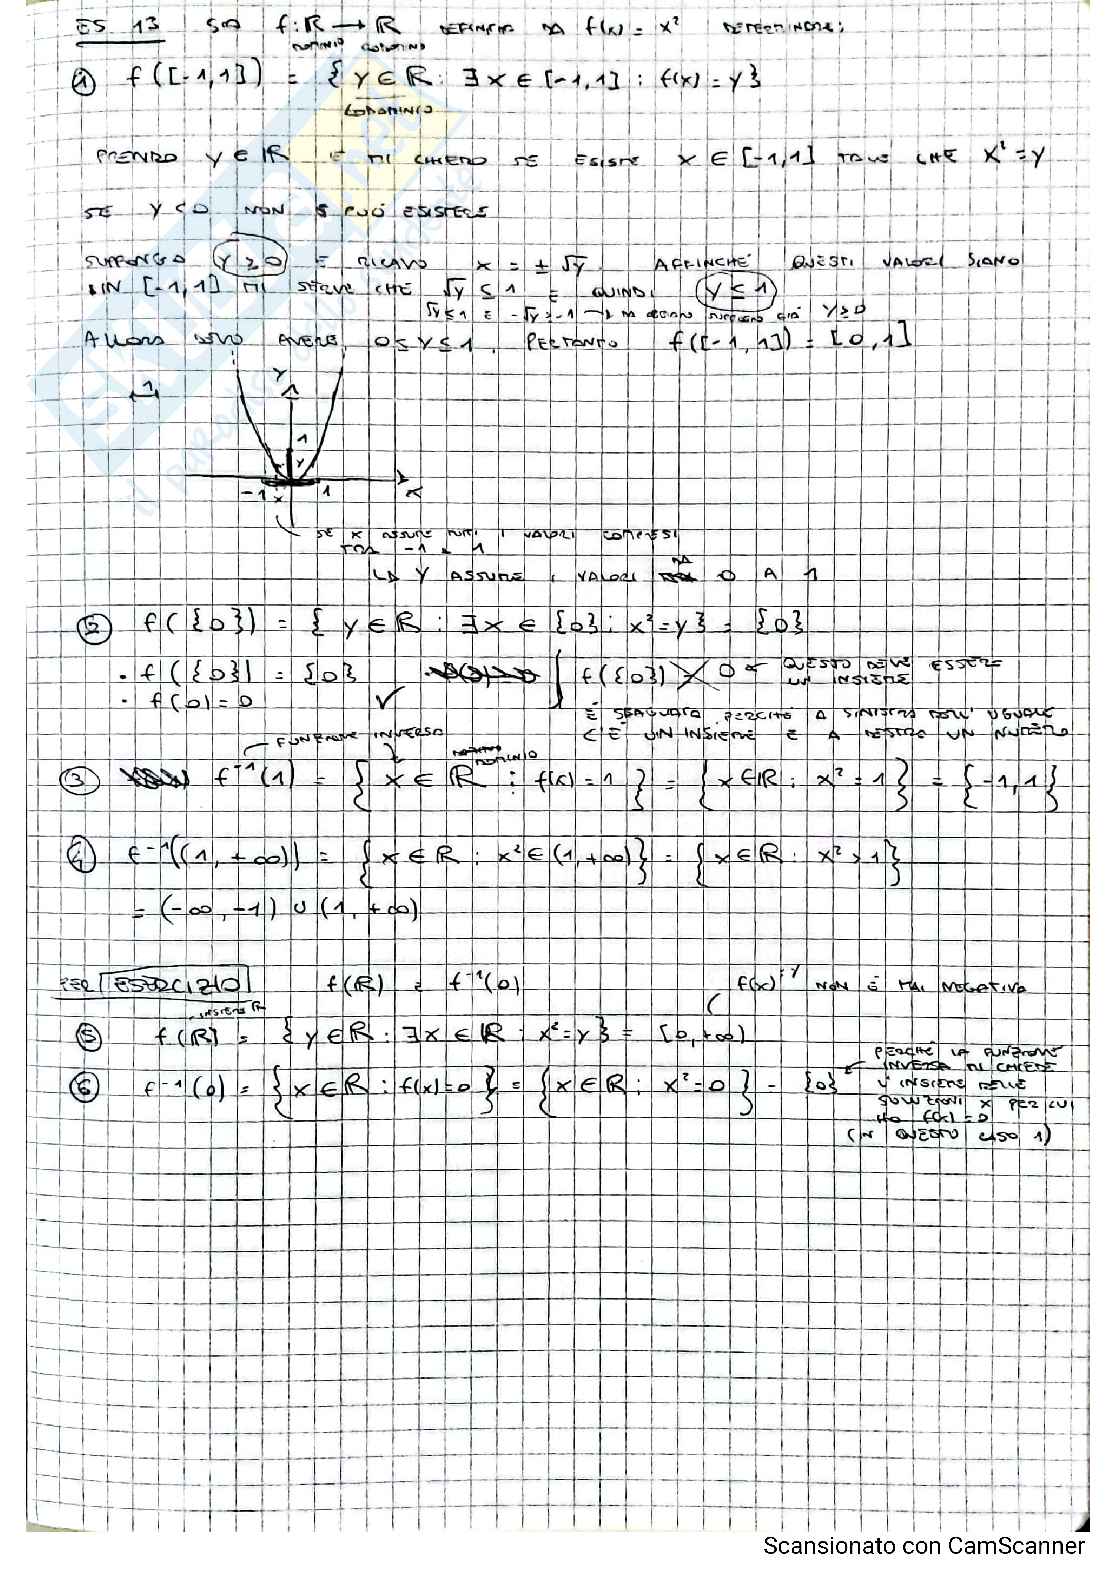 ES 13 SIA f: ℝ → ℝ DEFINITA DA f(x) = x² DETERMINARE:
DOMINIO CODOMINIO
① f([-1,1]) = { y ∈ ℝ : ∃ x ∈ [-1,1] : f(x) = y }
CODOMINIO
PRENDO y ∈ ℝ E MI CHIEDO SE ESISTE x ∈ [-1,1] TALE CHE x² = y
SE y < 0 NON PUÒ ESISTERE
SUPPONGO y ≥ 0 E RICAVO x = ± √y. AFFINCHÈ QUESTI VALORI SIANO
IN [-1,1] MI SERVE CHE √y ≤ 1 E QUINDI y ≤ 1
√y ≤ 1 E -√y ≥ -1 → GIÀ y ≥ 0
ALLORA DEVO AVERE 0 ≤ y ≤ 1. PERTANTO f([-1,1]) = [0,1]
1
y
1
y
-1 x 1 x
SE x ASSUME TUTTI I VALORI COMPRESI
TRA -1 e 1
LA y ASSUME I VALORI DA 0 A 1
② f({0}) = { y ∈ ℝ : ∃ x ∈ {0} : x² = y } = {0}
• f({0}) = {0} f({0}) 0 QUESTO DEVE ESSERE
UN INSIEME
• f(0) = 0 ✓
È SBAGLIATA PERCHÈ A SINISTRA DELL'UGUALE
C'È UN INSIEME E A DESTRA UN NUMERO
FUNZIONE INVERSA
DOMINIO
③ f⁻¹(1) = { x ∈ ℝ : f(x) = 1 } = { x ∈ ℝ : x² = 1 } = {-1,1}
④ f⁻¹((1,+∞)) = { x ∈ ℝ : x² ∈ (1,+∞) } = { x ∈ ℝ : x² > 1 }
= (-∞,-1) ∪ (1,+∞)
PER ESERCIZIO f(ℝ) E f⁻¹(0) f(x)=y NON È MAI NEGATIVA
INSIEME ℝ
⑤ f(ℝ) = { y ∈ ℝ : ∃ x ∈ ℝ : x² = y } = [0,+∞)
⑥ f⁻¹(0) = { x ∈ ℝ : f(x) = 0 } = { x ∈ ℝ : x² = 0 } = {0}
PERCHÈ LA FUNZIONE
INVERSA MI CHIEDE
L'INSIEME DELLE
SOLUZIONI x PER CUI
HO f(x) = 0
(IN QUESTO CASO 1)
Scansionato con CamScanner